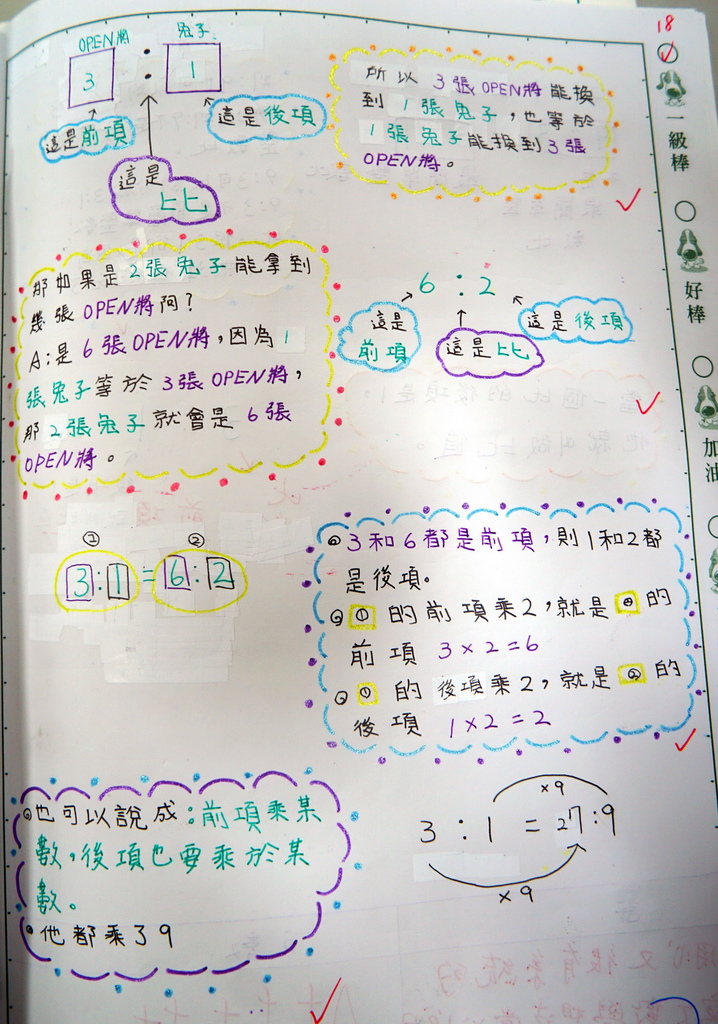 18
OPEN將 兔子
3 : 1
這是前項
這是後項
這是
比
所以 3張OPEN將能換
到 1張兔子,也等於
1張兔子能換到3張
OPEN將。
一級棒
好棒
加油
那如果是2張兔子能拿到
幾張OPEN將阿?
A:是6張OPEN將,因為1
張兔子等於3張OPEN將,
那2張兔子就會是6張
OPEN將。
6:2
這是
前項
這是比
這是後項
① ②
3:1=6:2
3和6都是前項,則1和2都
是後項。
①的前項乘2,就是②的
前項 3×2=6
①的後項乘2,就是②的
後項 1×2=2
也可以說成:前項乘某
數,後項也要乘於某
數。
他都乘了9
×9
3:1=27:9
×9